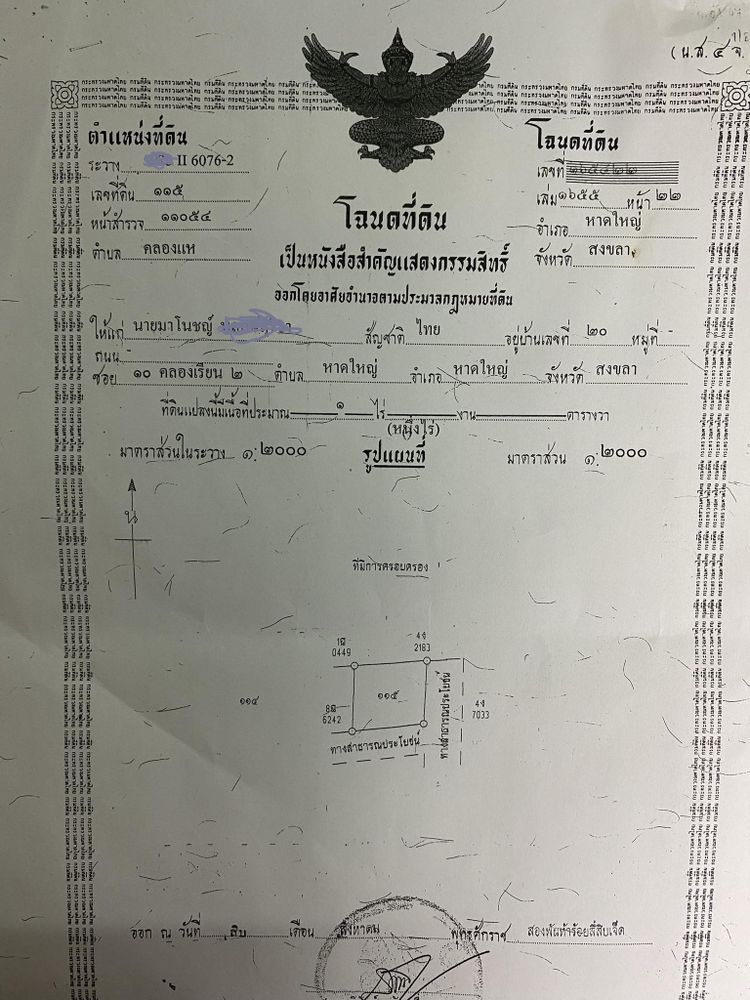 (น.ส. ๔ จ.
ตำแหน่งที่ดิน
ระวาง II 6076-2
เลขที่ดิน ๑๑๕
หน้าสำรวจ ๑๑๐๕๔
ตำบล คลองแห
โฉนดที่ดิน
เลขที่
เล่ม ๑๖๕๕ หน้า ๒๒
อำเภอ หาดใหญ่
จังหวัด สงขลา
โฉนดที่ดิน
เป็นหนังสือสำคัญแสดงกรรมสิทธิ์
ออกโดยอาศัยอำนาจตามประมวลกฎหมายที่ดิน
ให้แก่ นายมาโนชญ์ สัญชาติ ไทย อยู่บ้านเลขที่ ๒๐ หมู่ที่
ถนน
ซอย ๑๐ คลองเรียน ๒ ตำบล หาดใหญ่ อำเภอ หาดใหญ่ จังหวัด สงขลา
ที่ดินแปลงนี้มีเนื้อที่ประมาณ ๑ ไร่ งาน ตารางวา
(หนึ่งไร่)
มาตราส่วนในระวาง ๑:๒๐๐๐ รูปแผนที่ มาตราส่วน ๑:๒๐๐๐
น
ที่มีการครอบครอง
0449
4ง
2183
๑๑๔
๑๑๕
6242
4ง
7033
ทางสาธารณประโยชน์
ทางสาธารณประโยชน์
ออก ณ วันที่ สิบ เดือน สิงหาคม พุทธศักราช สองพันห้าร้อยสี่สิบเจ็ด